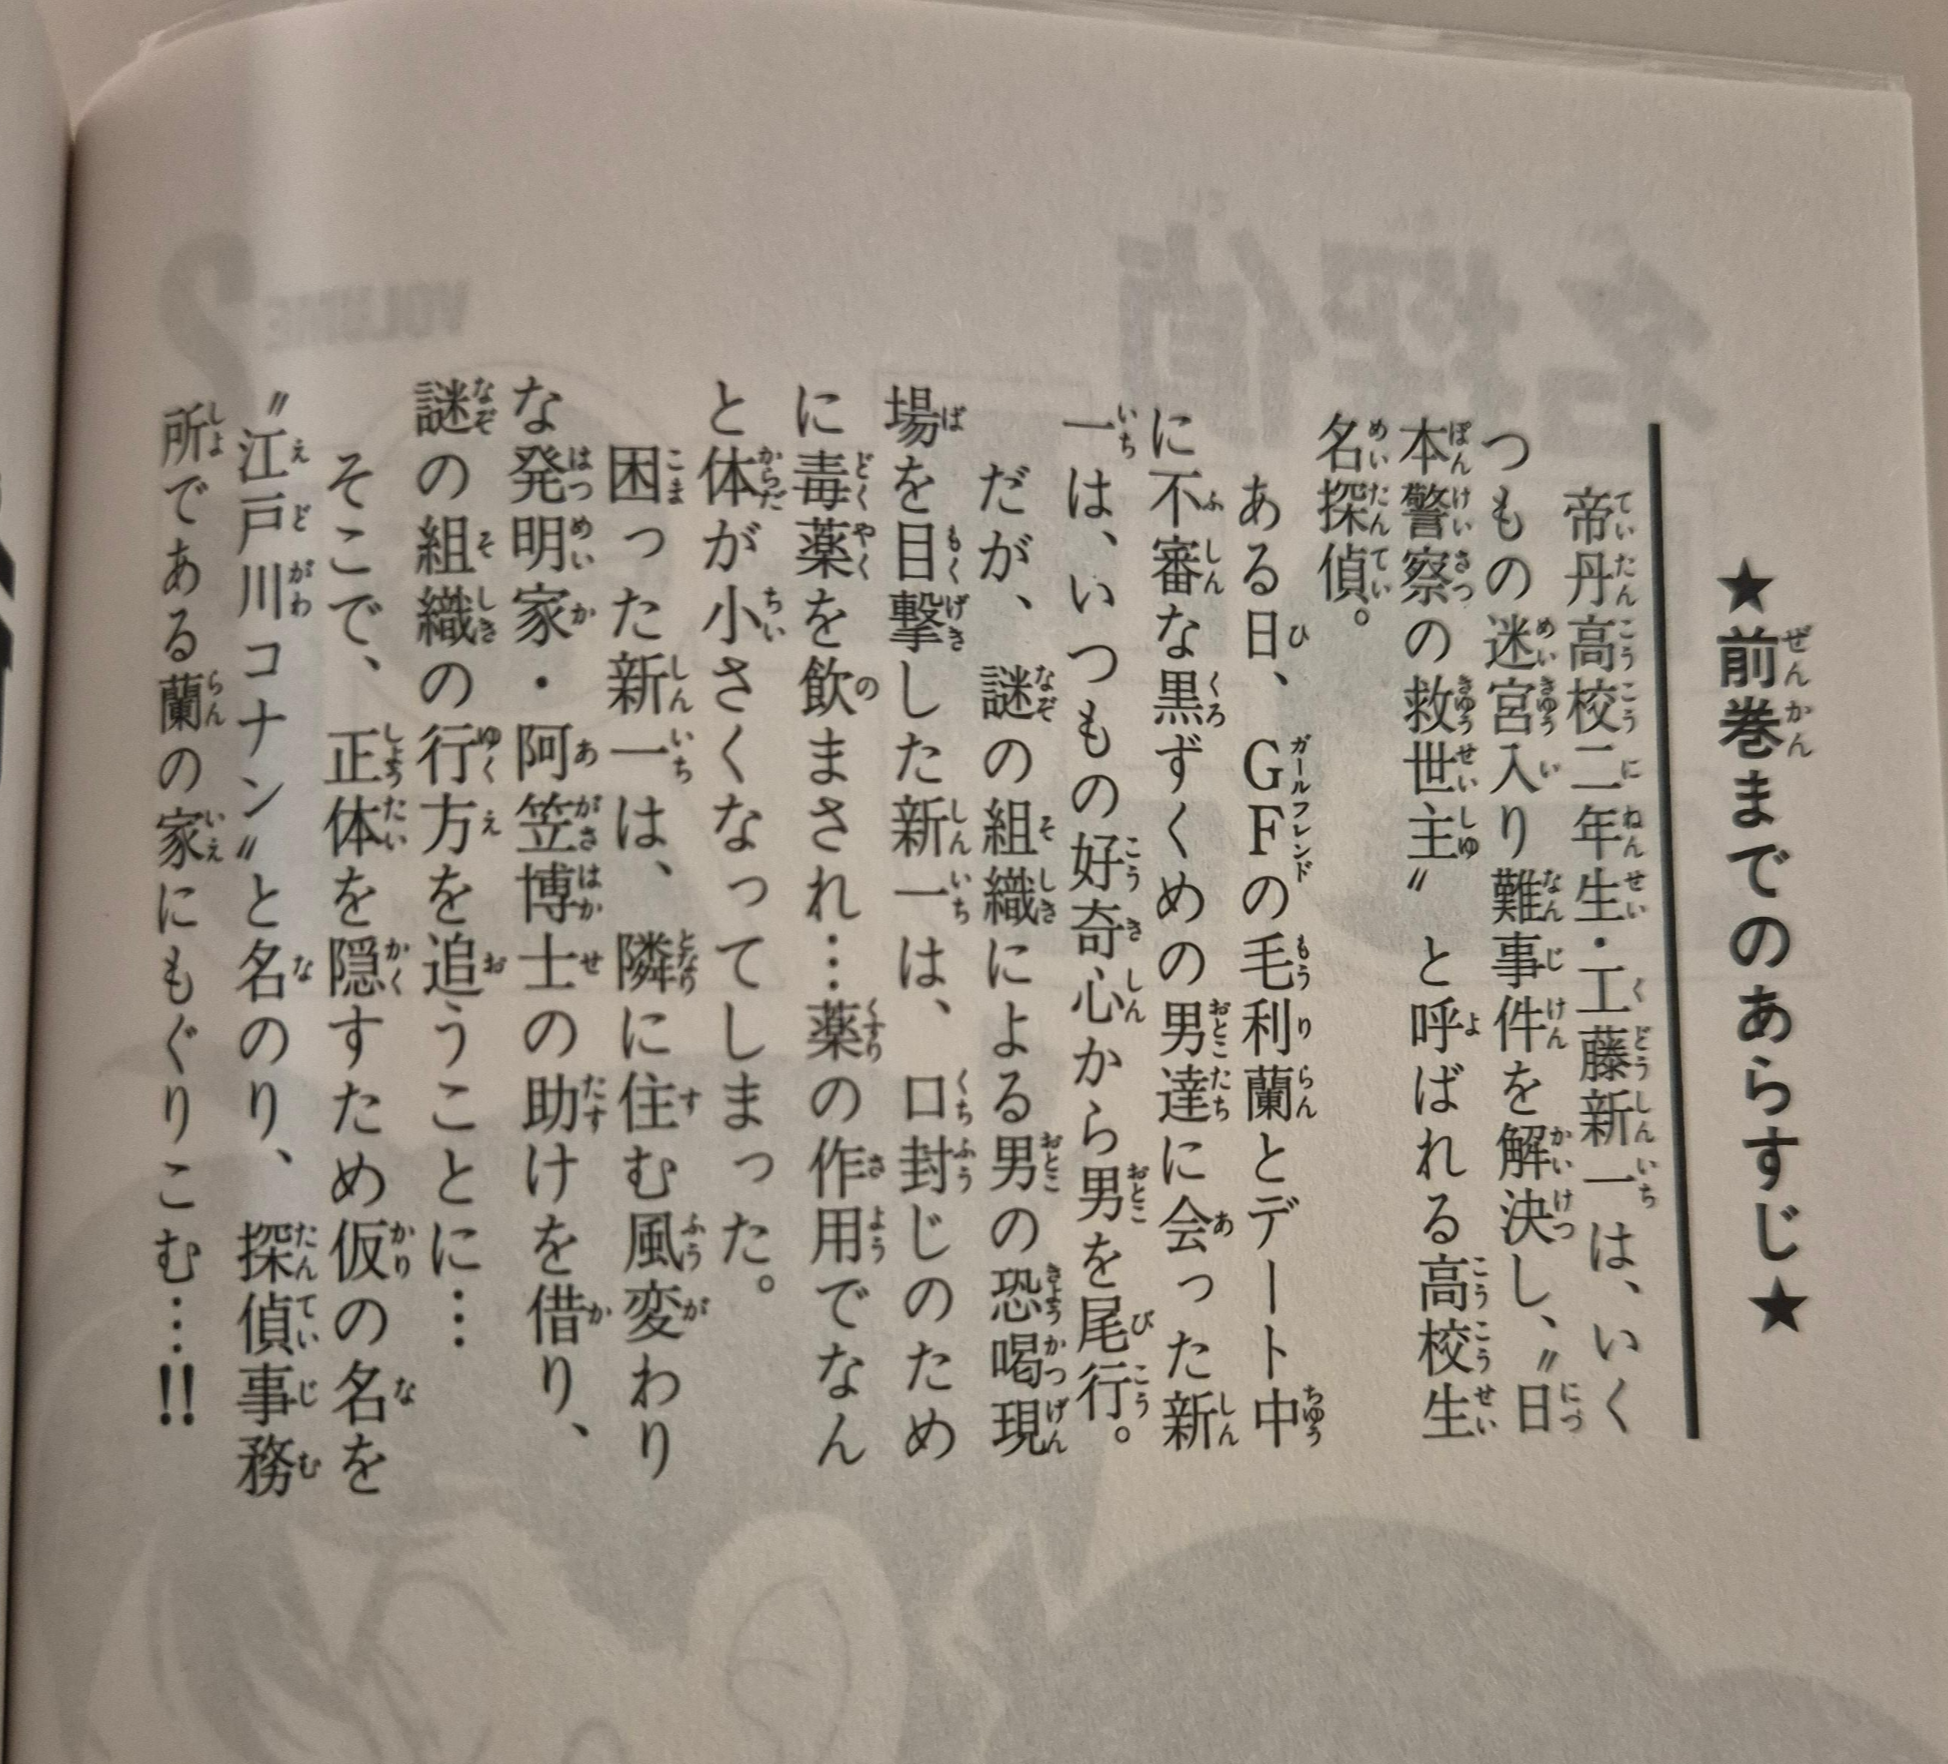 ★前巻までのあらすじ★
帝丹高校二年生・工藤新一は、いく
つもの迷宮入り難事件を解決し、〝日
本警察の救世主〟と呼ばれる高校生
名探偵。
ある日、GFの毛利蘭とデート中
に不審な黒ずくめの男達に会った新
一は、いつもの好奇心から男を尾行。
だが、謎の組織による男の恐喝現
場を目撃した新一は、口封じのため
に毒薬を飲まされ…薬の作用でなん
と体が小さくなってしまった。
困った新一は、隣に住む風変わり
な発明家・阿笠博士の助けを借り、
謎の組織の行方を追うことに…
そこで、正体を隠すため仮の名を
〝江戸川コナン〟と名のり、探偵事務
所である蘭の家にもぐりこむ…!!
名探偵
VOLUME
2